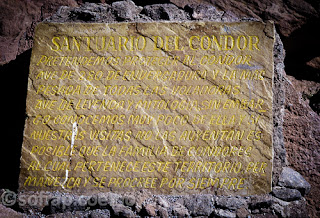 SANTUARIO DEL CONDOR
PRETENDEMOS PROTEGER AL CONDOR
AVE DE DE ENVERGADURA Y LA MAS
PESADA DE TODAS LAS VOLADORAS.
AVE DE LEYENDA Y MITOLOGIA, SIN EMBAR
GO CONOCEMOS MUY POCO DE ELLA Y CON
NUESTRAS VISITAS NO LAS AUYENTAN ES
POSIBLE QUE LA FAMILIA DE CONDORES
AL CUAL PERTENECE ESTE TERRITORIO PER
MANEZCA Y SE PROCREE POR SIEMPRE